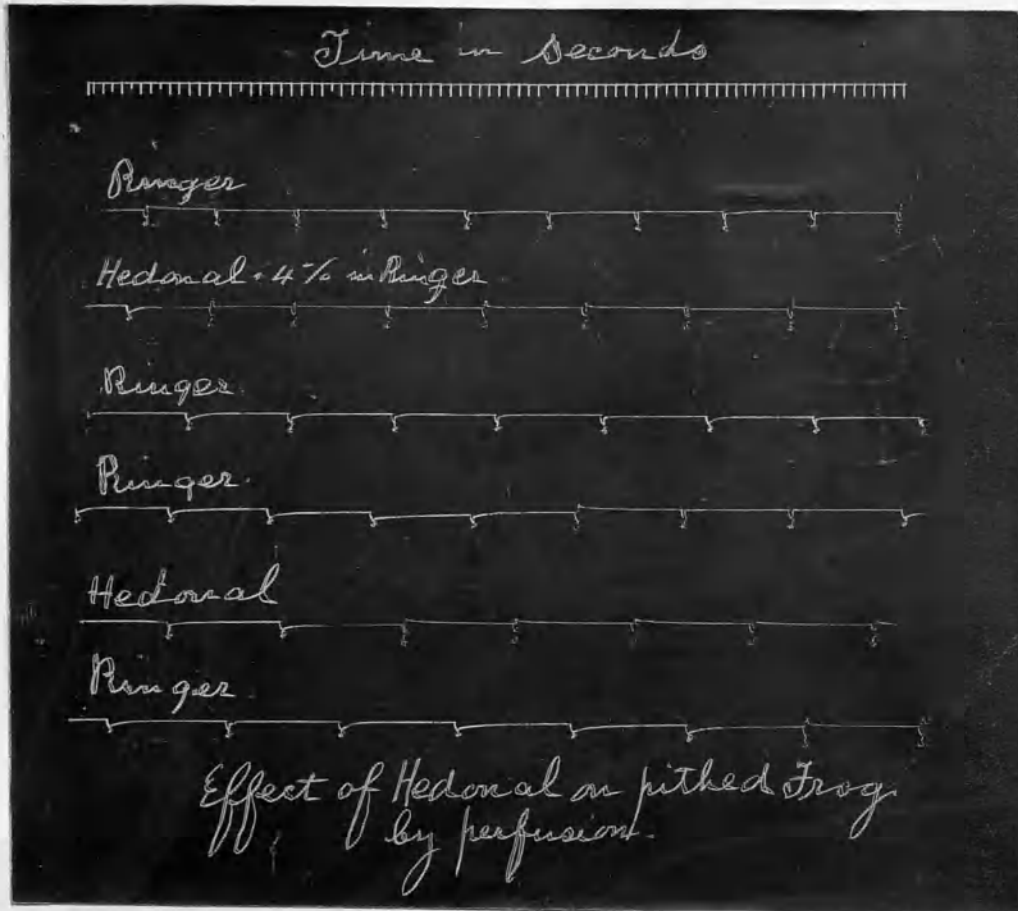 Time in Seconds
Ringer
Hedonal .4% in Ringer.
Ringer.
Ringer.
Hedonal
Ringer.
Effect of Hedonal on pithed Frog.
by perfusion.